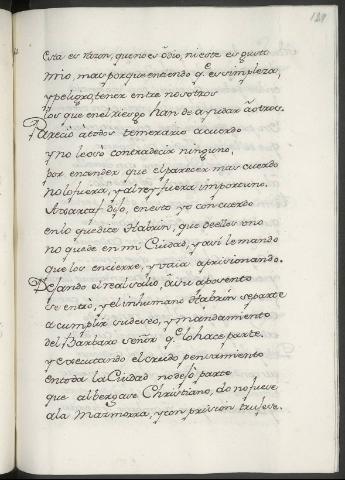 129
Esta es razon, que no es odio, ni este es gusto
mio, mas porque entiendo q̃. es simpleza,
y peligro, tener entre nosotros
los que en el riesgo han de ayudar à otros.
Pareciò à todos temerario acuerdo
y no lo osò contradecir ninguno,
por entender que el parecer mas cuerdo
no lo fuera, y al rey fuera importuno.
Amarcaf dijo, en esto yo concuerdo
en lo que dice Habrun, que de ellos uno
no quede en mi Ciudad, y asi le mando
que los encierre, y vaia aprisionando.
Dejando el real salio, à su aposento
se entrò, y el inhumano Habrun se parte
a cumplir su deseo, y mandamiento
del Barbaro señor q̃. lo hace parte.
y executando el crudo pensamiento
en toda la Ciudad no dejò parte
que albergase Christiano, do no fuese
a la Mazmorra, y con prision truxese.